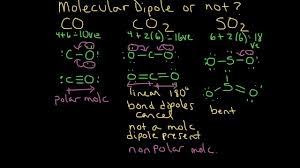 Molecular Dipole or not?
CO CO2 SO2
4+6=10ve 4+2(6)=16ve 6+2(6)=18ve
:C-O: :O-C-O: :O-S-O:
:C≡O: O=C=O O=S-O:
polar molc. linear 180° bent
bond dipoles
cancel
not a molc
dipole present
nonpolar molc.